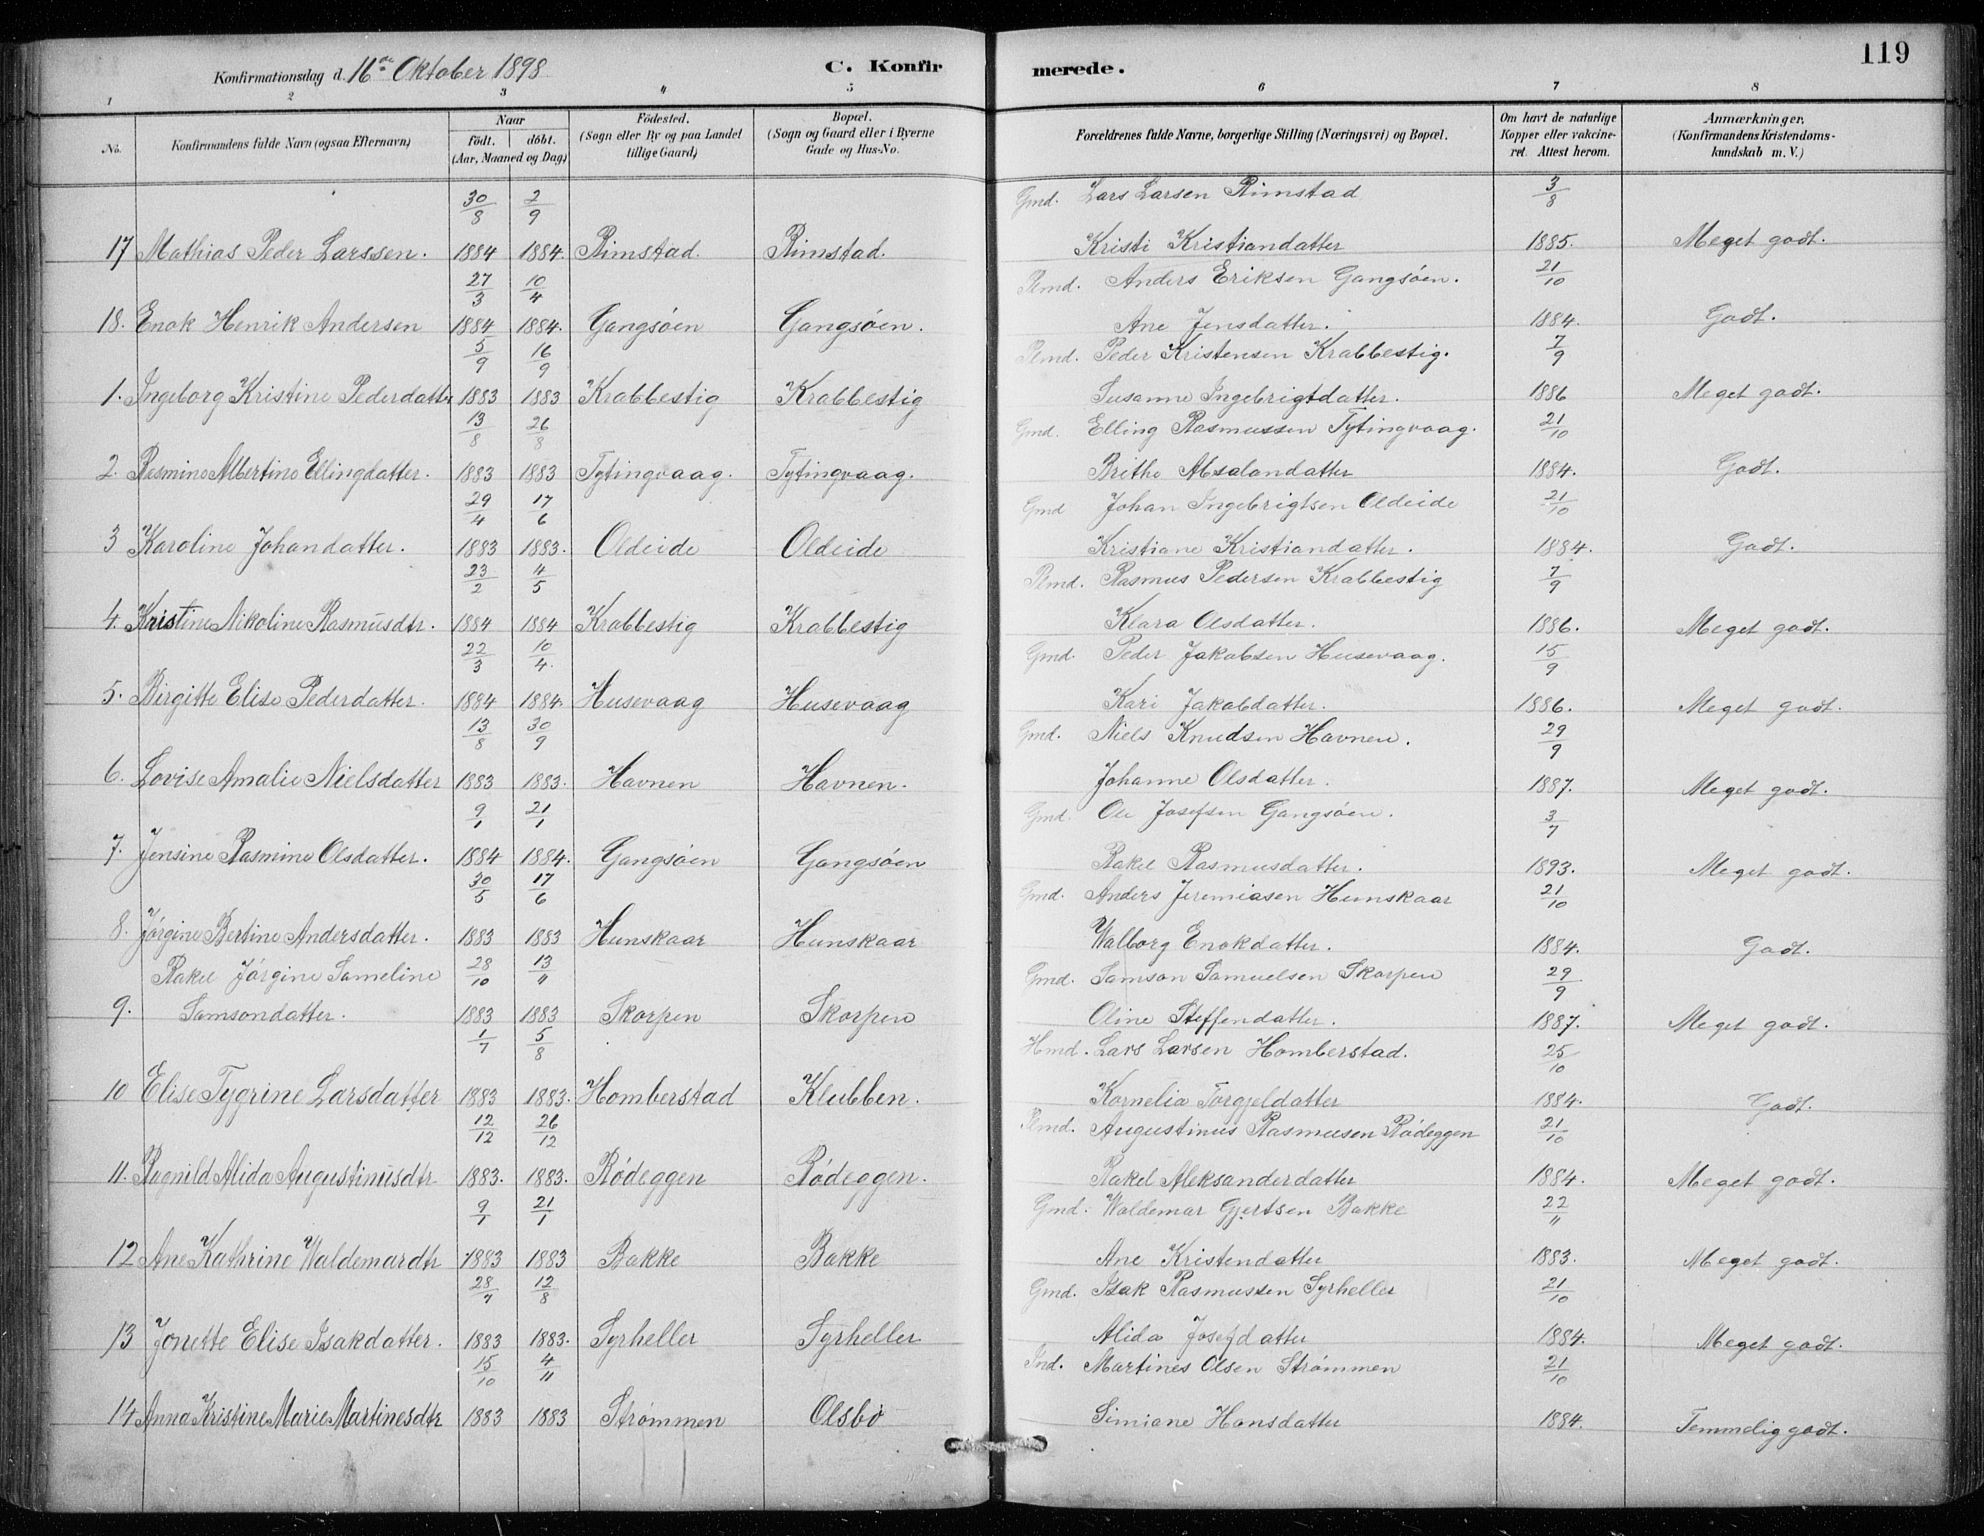 119
Konfirmationsdag d. 16de Oktober 1898
C. Konfirmerede.
1 2 3 4 5 6 7 8
No. Konfirmandens fulde Navn (ogsaa Efternavn) Naar født. døbt. (Aar, Maaned og Dag) Fødested. (Sogn eller By og paa Landet tillige Gaard) Bopæl. (Sogn og Gaard eller i Byerne Gade og Hus-No. Forældrenes fulde Navne, borgerlige Stilling (Næringsvei) og Bopæl. Om havt de naturlige Kopper eller vakcineret. Attest herom. Anmærkninger. (Konfirmandens Kristendomskundskab m. V.)
30/8 2/9 Gmd. Lars Larsen Rimstad 3/8
17 Mathias Peder Larssen. 1884 1884. Rimstad. Rimstad. Kristi Kristiandatter 1885. Meget godt.
27/3 10/4 Plmd. Anders Eriksen Gangsöen. 21/10
18. Enok Henrik Andersen 1884 1884. Gangsöen Gangsöen. Ane Jensdatter. 1884. Godt.
5/9 16/9 Plmd. Peder Kristensen Krabbestig. 7/9
1. Ingeborg Kristine Pederdatter 1883 1883 Krabbestig Krabbestig Susanne Ingebrigtdatter. 1886 Meget godt.
13/8 26/8 Gmd. Elling Rasmussen Tytingvaag. 21/10
2. Rasmine Albertine Ellingdatter. 1883 1883 Tytingvaag. Tytingvaag. Brithe Absalondatter 1884. Godt.
29/4 17/6 Gmd Johan Ingebrigtsen Oldeide 21/10
3 Karoline Johandatter. 1883 1883. Oldeide Oldeide Kristiane Kristiandatter. 1884. Godt.
23/2 4/5 Plmd. Rasmus Pedersen Krabbestig 7/9
4. Kristine Nikoline Rasmusdtr. 1884 1884 Krabbestig Krabbestig Klara Olsdatter. 1886. Meget godt.
22/3 10/4. Gmd. Peder Jakobsen Husevaag. 15/9
5. Birgitte Elise Pederdatter. 1884 1884. Husevaag Husevaag Kari Jakobdatter. 1886. Meget godt.
13/8 30/9 Gmd. Niels Knudsen Havnen. 29/9
6. Lovise Amalie Nielsdatter 1883 1883. Havnen Havnen. Johanne Olsdatter. 1887. Meget godt.
9/1 21/1 Gmd. Ole Josefsen Gangsöen. 3/7
7. Jensine Rasmine Olsdatter. 1884 1884. Gangsöen Gangsöen Rakel Rasmusdatter. 1893. Meget godt.
30/5 17/6 Gmd. Anders Jeremiasen Hunskaar 21/10
8. Jörgine Bertine Andersdatter. 1883 1883 Hunskaar Hunskaar Walborg Enokdatter. 1884. Godt.
Rakel Jörgine Sameline 28/10 13/11 Gmd. Samson Samuelsen Skorpen 29/9
9. Samsondatter. 1883 1883 Skorpen Skorpen Oline Steffendatter. 1887. Meget godt.
1/7 5/8 Hmd. Lars Larsen Homberstad. 25/10
10 Elise Tygrine Larsdatter 1883 1883. Homberstad Klubben. Kornelia Torgjeldatter 1884. Godt.
12/12 26/12 Plmd. Augustinus Rasmusen Rödeggen 21/10
11. Ragnild Alida Augustinusdtr 1883. 1883. Rödeggen Rödeggen. Rakel Aleksanderdatter 1884. Meget godt.
9/1 21/1 Gmd. Waldemar Gjertsen Bakke 22/11
12 Ane Kathrine Waldemardtr 1883 1883 Bakke Bakke Ane Kristendatter 1883. Meget godt.
28/7 12/8 Gmd. Isak Rasmussen Syrheller 21/10
13 Jonette Elise Isakdatter. 1883 1883. Syrheller Syrheller Alida Josefdatter 1884. Meget godt.
15/10 4/11 Ind. Martines Olsen Strømmen 21/10
14 Anna Kristine Marie Martinesdtr 1883 1883 Strømmen Olsbö Simiane Hansdatter 1884. Temmelig godt.